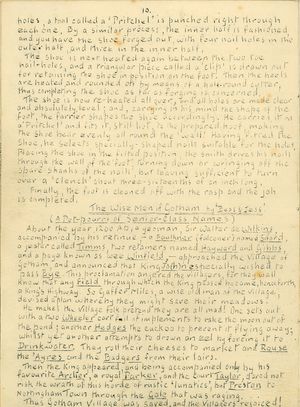 10.
holes, a tool called a 'Pritchel' is punched right through
each one. By a similar process, the inner half is fashioned
and you have the shoe forged out, with four nail holes in the
outer half, and three in the inner half.
The shoe is next heated again between the two toe
nail-holes, and a triangular piece called a 'clip' is drawn out
for retaining the shoe in position on the foot. Then the heels
are heated and rounded off by means of a half-round cutter,
thus completing the shoe so far as forging is concerned.
The shoe is now re-heated all over, and all holes are made clear
and absolutely level; and, carrying in his mind the shape of the
foot, the farrier shapes the shoe accordingly. He carries it on
a Pritchel and it, still hot, is prepared, not making
the shoe bear evenly all round the wall. Having fitted the
shoe, he selects specially-shaped nails suitable for the holes.
Placing the shoe in the fitted position, the smith drives his nails
through the wall of the foot, turning down or wringing off the
spare shanks of the nails, but leaving sufficient to turn
over a "clench" about three-sixteenths of an inch long.
Finally, the foot is cleaned off with the rasp and the job
is completed.
The Wise Men of Gotham by "Bossy Joss"
(A Pot-pourri of Senior-Class Names)
About the year 1200 A.D. a yeoman, Sir Walter de Wilkins,
accompanied by his retinue - a Faulkner (falconer) named Beard,
a jester called Timms, two retainers named Hayward and Gibbs,
and a page known as wee Winfield, - approached the Village of
Gotham and announced that King John especially wished to
pass Bye. This proclamation angered the villagers, for they
knew that any Field through which the King passed became, henceforth
a King's highway. So Gaffer Miles, a wise old man of the village,
devised a plan whereby they might save their meadows:
He makes the Village folk pretend they are all mad! One sets out
with a huge Wheeler cart to implement to rake the moon out of
the pond; another Hedges the cuckoo to prevent it flying away;
whilst yet another attempts to drown an eel by forcing it to
Drinkwater. They roll their cheeses to market and Rouse
the 'Ayres and the Badgers from their lairs.
Then the King appeared, and being accompanied by his
favourite Archer, a royal Parker, and the Court Taylor, I would not
risk the wrath of this horde of mystic "lunatics", but Preston to
Nottingham Town through the Gale that was raging.
Thus Gotham Village was saved, and the villagers rejoiced!